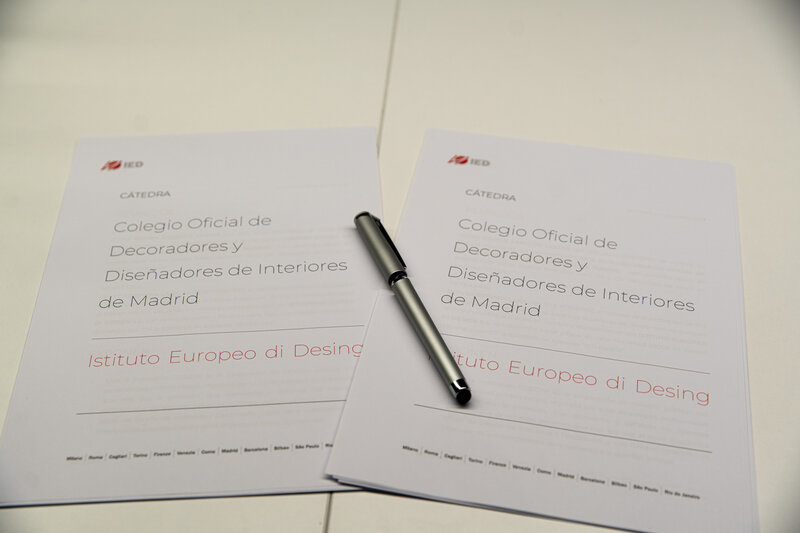 IED
CÁTEDRA
Colegio Oficial de
Decoradores y
Diseñadores de Interiores
de Madrid
Istituto Europeo di Desing
Milano | Roma | Cagliari | Torino | Firenze | Venezia | Como | Madrid | Barcelona | Bilbao | São Paulo
IED
CÁTEDRA
Colegio Oficial de
Decoradores y
Diseñadores de Interiores
de Madrid
tituto Europeo di Desing
Milano | Roma | Cagliari | Torino | Firenze | Venezia | Como | Madrid | Barcelona | Bilbao | São Paulo | Rio de Janeiro